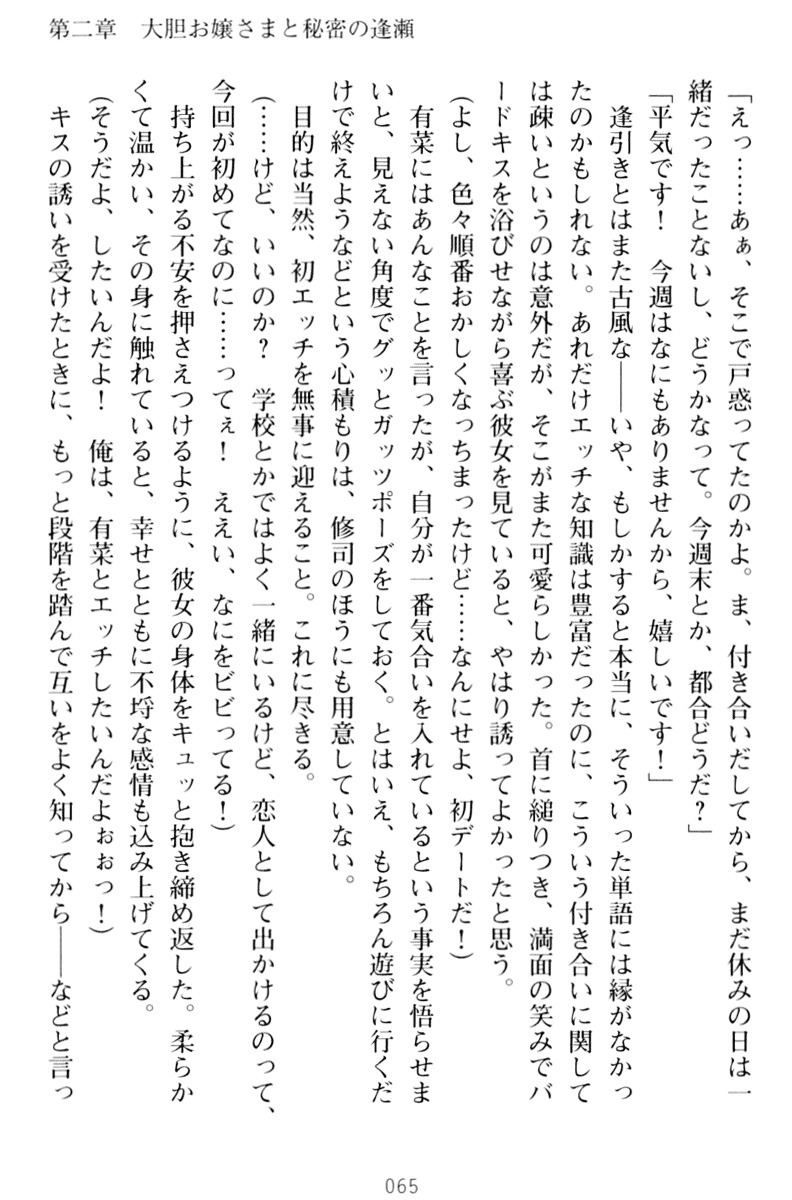 第二章　大胆お嬢さまと秘密の逢瀬
「えっ……あぁ、そこで戸惑ってたのかよ。ま、付き合いだしてから、まだ休みの日は一
緒だったことないし、どうかなって。今週末とか、都合どうだ？」
「平気です！　今週はなにもありませんから、嬉しいです！」
　逢引きとはまた古風な――いや、もしかすると本当に、そういった単語には縁がなかっ
たのかもしれない。あれだけエッチな知識は豊富だったのに、こういう付き合いに関して
は疎いというのは意外だが、そこがまた可愛らしかった。首に縋りつき、満面の笑みでバ
ードキスを浴びせながら喜ぶ彼女を見ていると、やはり誘ってよかったと思う。
（よし、色々順番おかしくなっちまったけど……なんにせよ、初デートだ！）
　有菜にはあんなことを言ったが、自分が一番気合いを入れているという事実を悟らせま
いと、見えない角度でグッとガッツポーズをしておく。とはいえ、もちろん遊びに行くだ
けで終えようなどという心積もりは、修司のほうにも用意していない。
　目的は当然、初エッチを無事に迎えること。これに尽きる。
（……けど、いいのか？　学校とかではよく一緒にいるけど、恋人として出かけるのって、
今回が初めてなのに……ってぇ！　ええい、なにをビビってる！）
　持ち上がる不安を押さえつけるように、彼女の身体をキュッと抱き締め返した。柔らか
くて温かい、その身に触れていると、幸せとともに不埒な感情も込み上げてくる。
（そうだよ、したいんだよ！　俺は、有菜とエッチしたいんだよぉぉっ！）
　キスの誘いを受けたときに、もっと段階を踏んで互いをよく知ってから――などと言っ
065